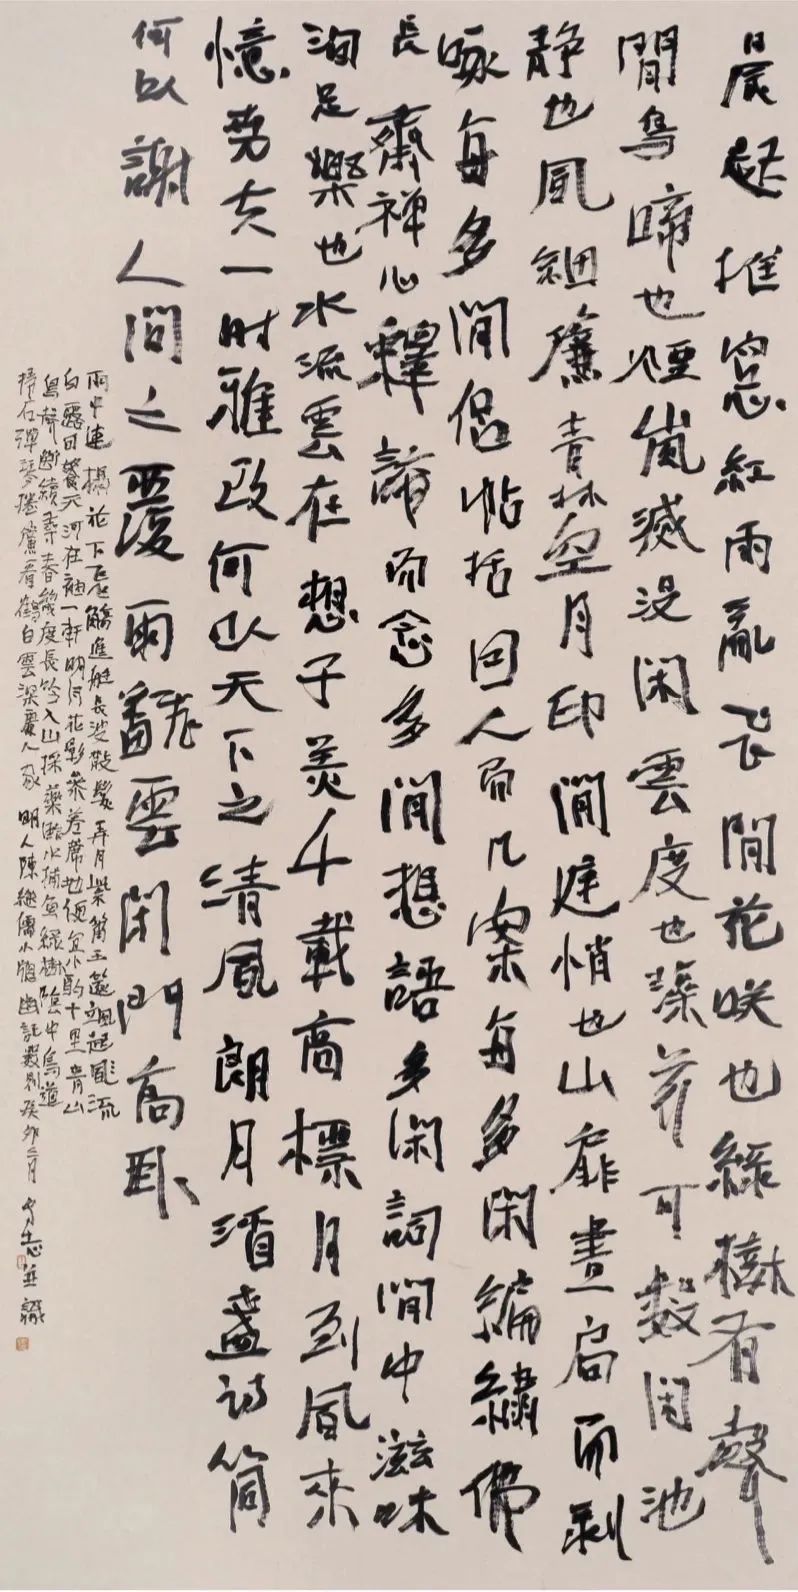 晨起推窗紅雨亂飛閒花咲也綠樹有聲
閒鳥啼也煙嵐滅没閑雲度也藻荇可數閑池
静也風細簾青林空月印閒庭悄也山扉晝扃而剥
啄每多閒侶帖括因人而几案每多閑編繡佛
長齋禅心釋諦而念多閒想語多閑詞閒中滋味
洵足樂也水流雲在想子美千載高標月到風来
憶尭夫一时雅致何以天下之清風朗月酒盞詩筒
何以謝人間之覆雨翻雲閉門高卧
雨中連榻花下飛觴進艇長波散髮弄月紫簫玉篴颯起風流
白露可餐天河在袖一軒明月花影參差席地便宜小酌十里青山
鳥聲斷續尋春幾度長吟入山採藥臨水捕魚緑樹陰中鳥道
掃石彈琴捲簾看鶴白雲深處人家 明人陳繼儒小窗幽記數則癸卯二月